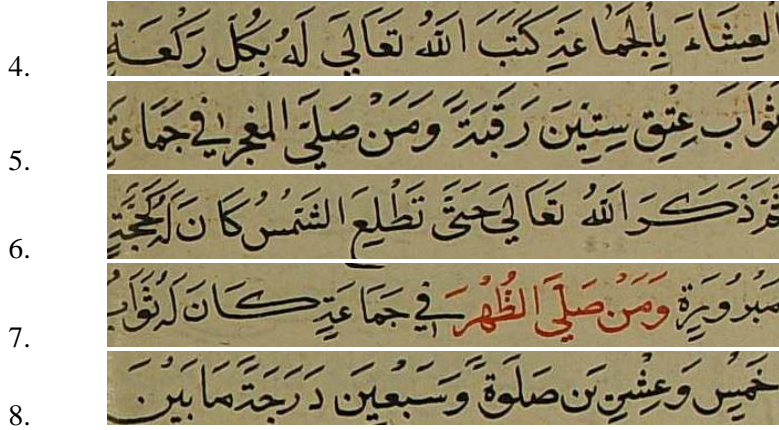 4. العِشَاءَ بِالْجَمَاعَةِ كَتَبَ اللّٰهُ تَعَالَي لَهُ بِكُلِّ رَكْعَةٍ
5. ثَوَابَ عِتِقِ سِتِينَ رَقَبَةً وَمَنْ صَلَّي الفجر في جَمَاعَةٍ
6. ثُمَّ ذَكَرَ اللّٰهُ تَعَالَي حَتَّي تَطْلِعَ الشَّمْسُ كَانَ لَهُ كَحَجَّةٍ
7. مَبْرُورَةٍ وَمَنْ صَلَّي الظُّهْرَ في جَمَاعَةٍ كَانَ لَهُ ثَوَابُ
8. خَمْسٍ وَعِشْرِينَ صَلَوةً وَسَبْعِينَ دَرَجَةً مَا بَيْنَ